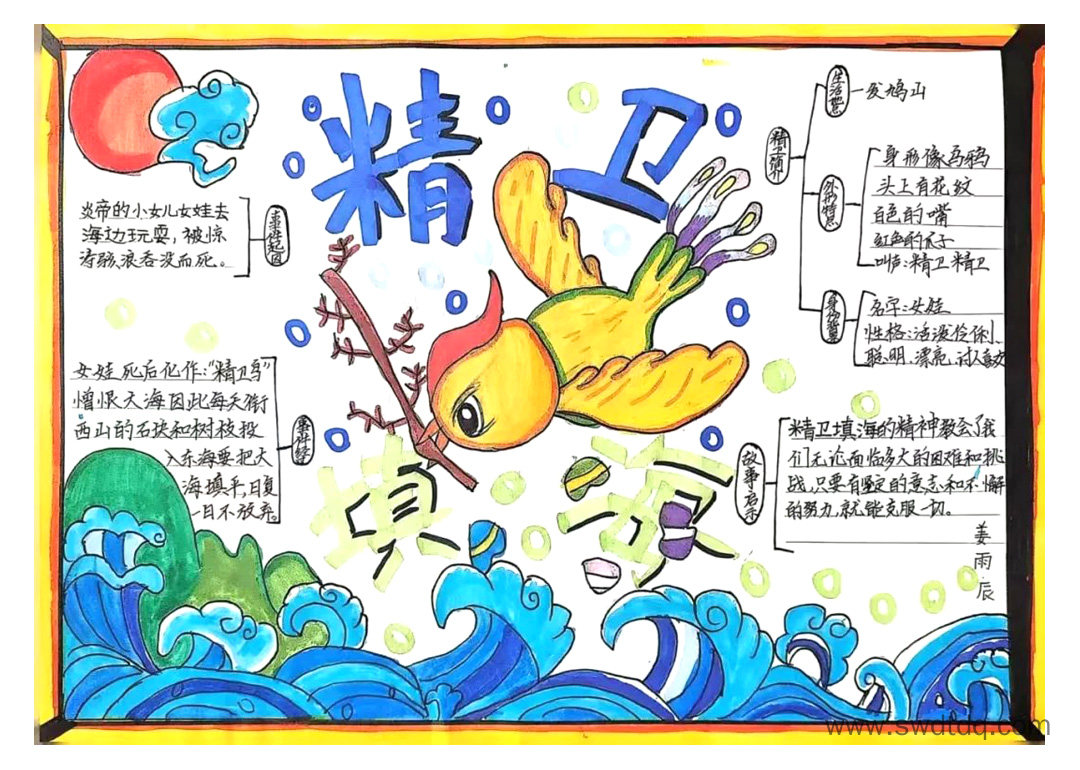 精卫
填海
炎帝的小女儿女娃去
海边玩耍，被惊
涛骇浪吞没而死。
事件起因
女娃死后化作："精卫鸟"
憎恨大海因此每天衔
西山的石块和树枝投
入东海要把大
海填平,日复
一日不放弃。
事件经
精卫简介
生活
发鸠山
外形特点
身形像乌鸦
头上有花纹
白色的嘴
红色的爪子
叫声:精卫精卫
身份背景
名字:女娃
性格:活泼伶俐、
聪明.漂亮.讨人喜欢
故事启示
精卫填海的精神教会了我
们无论面临多大的困难和挑
战,只要有坚定的意志和不懈
的努力,就能克服一切。
姜雨辰
www.swdtdq.com